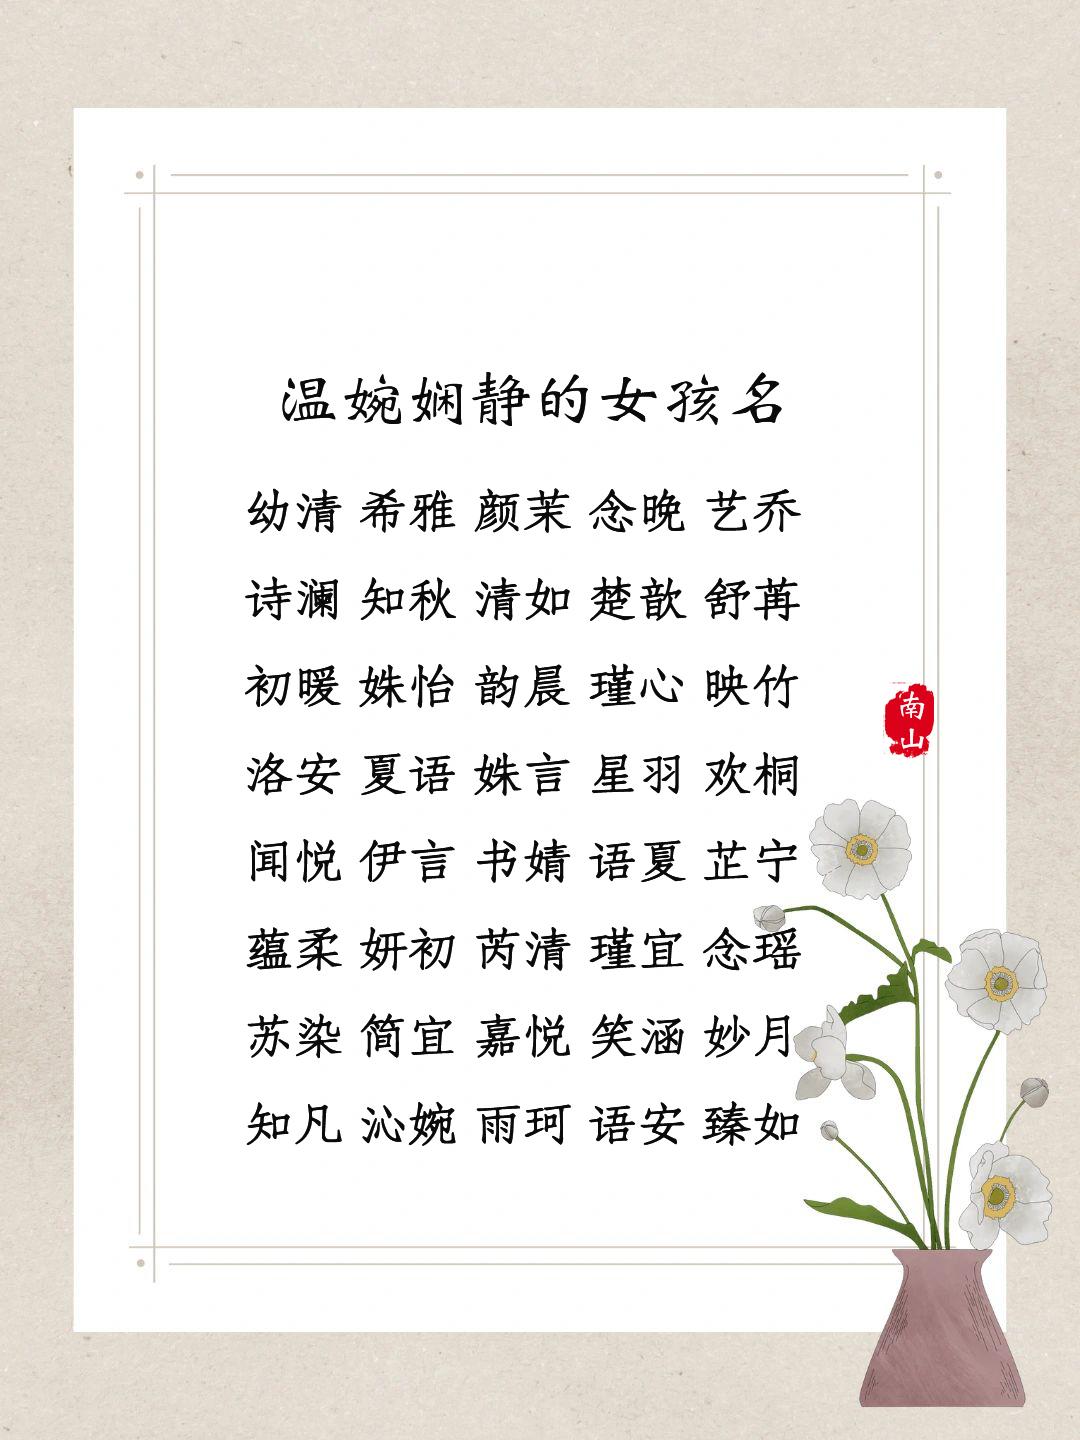 温婉娴静的女孩名
幼清 希雅 颜茉 念晚 艺乔
诗澜 知秋 清如 楚歆 舒苒
初暖 姝怡 韵晨 瑾心 映竹
南山
洛安 夏语 姝言 星羽 欢桐
闻悦 伊言 书婧 语夏 芷宁
蕴柔 妍初 芮清 瑾宜 念瑶
苏染 简宜 嘉悦 笑涵 妙月
知凡 沁婉 雨珂 语安 臻如